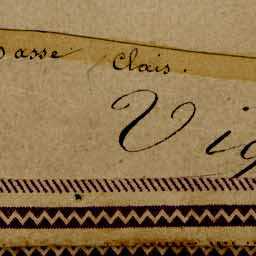 asse Clais.
Vig